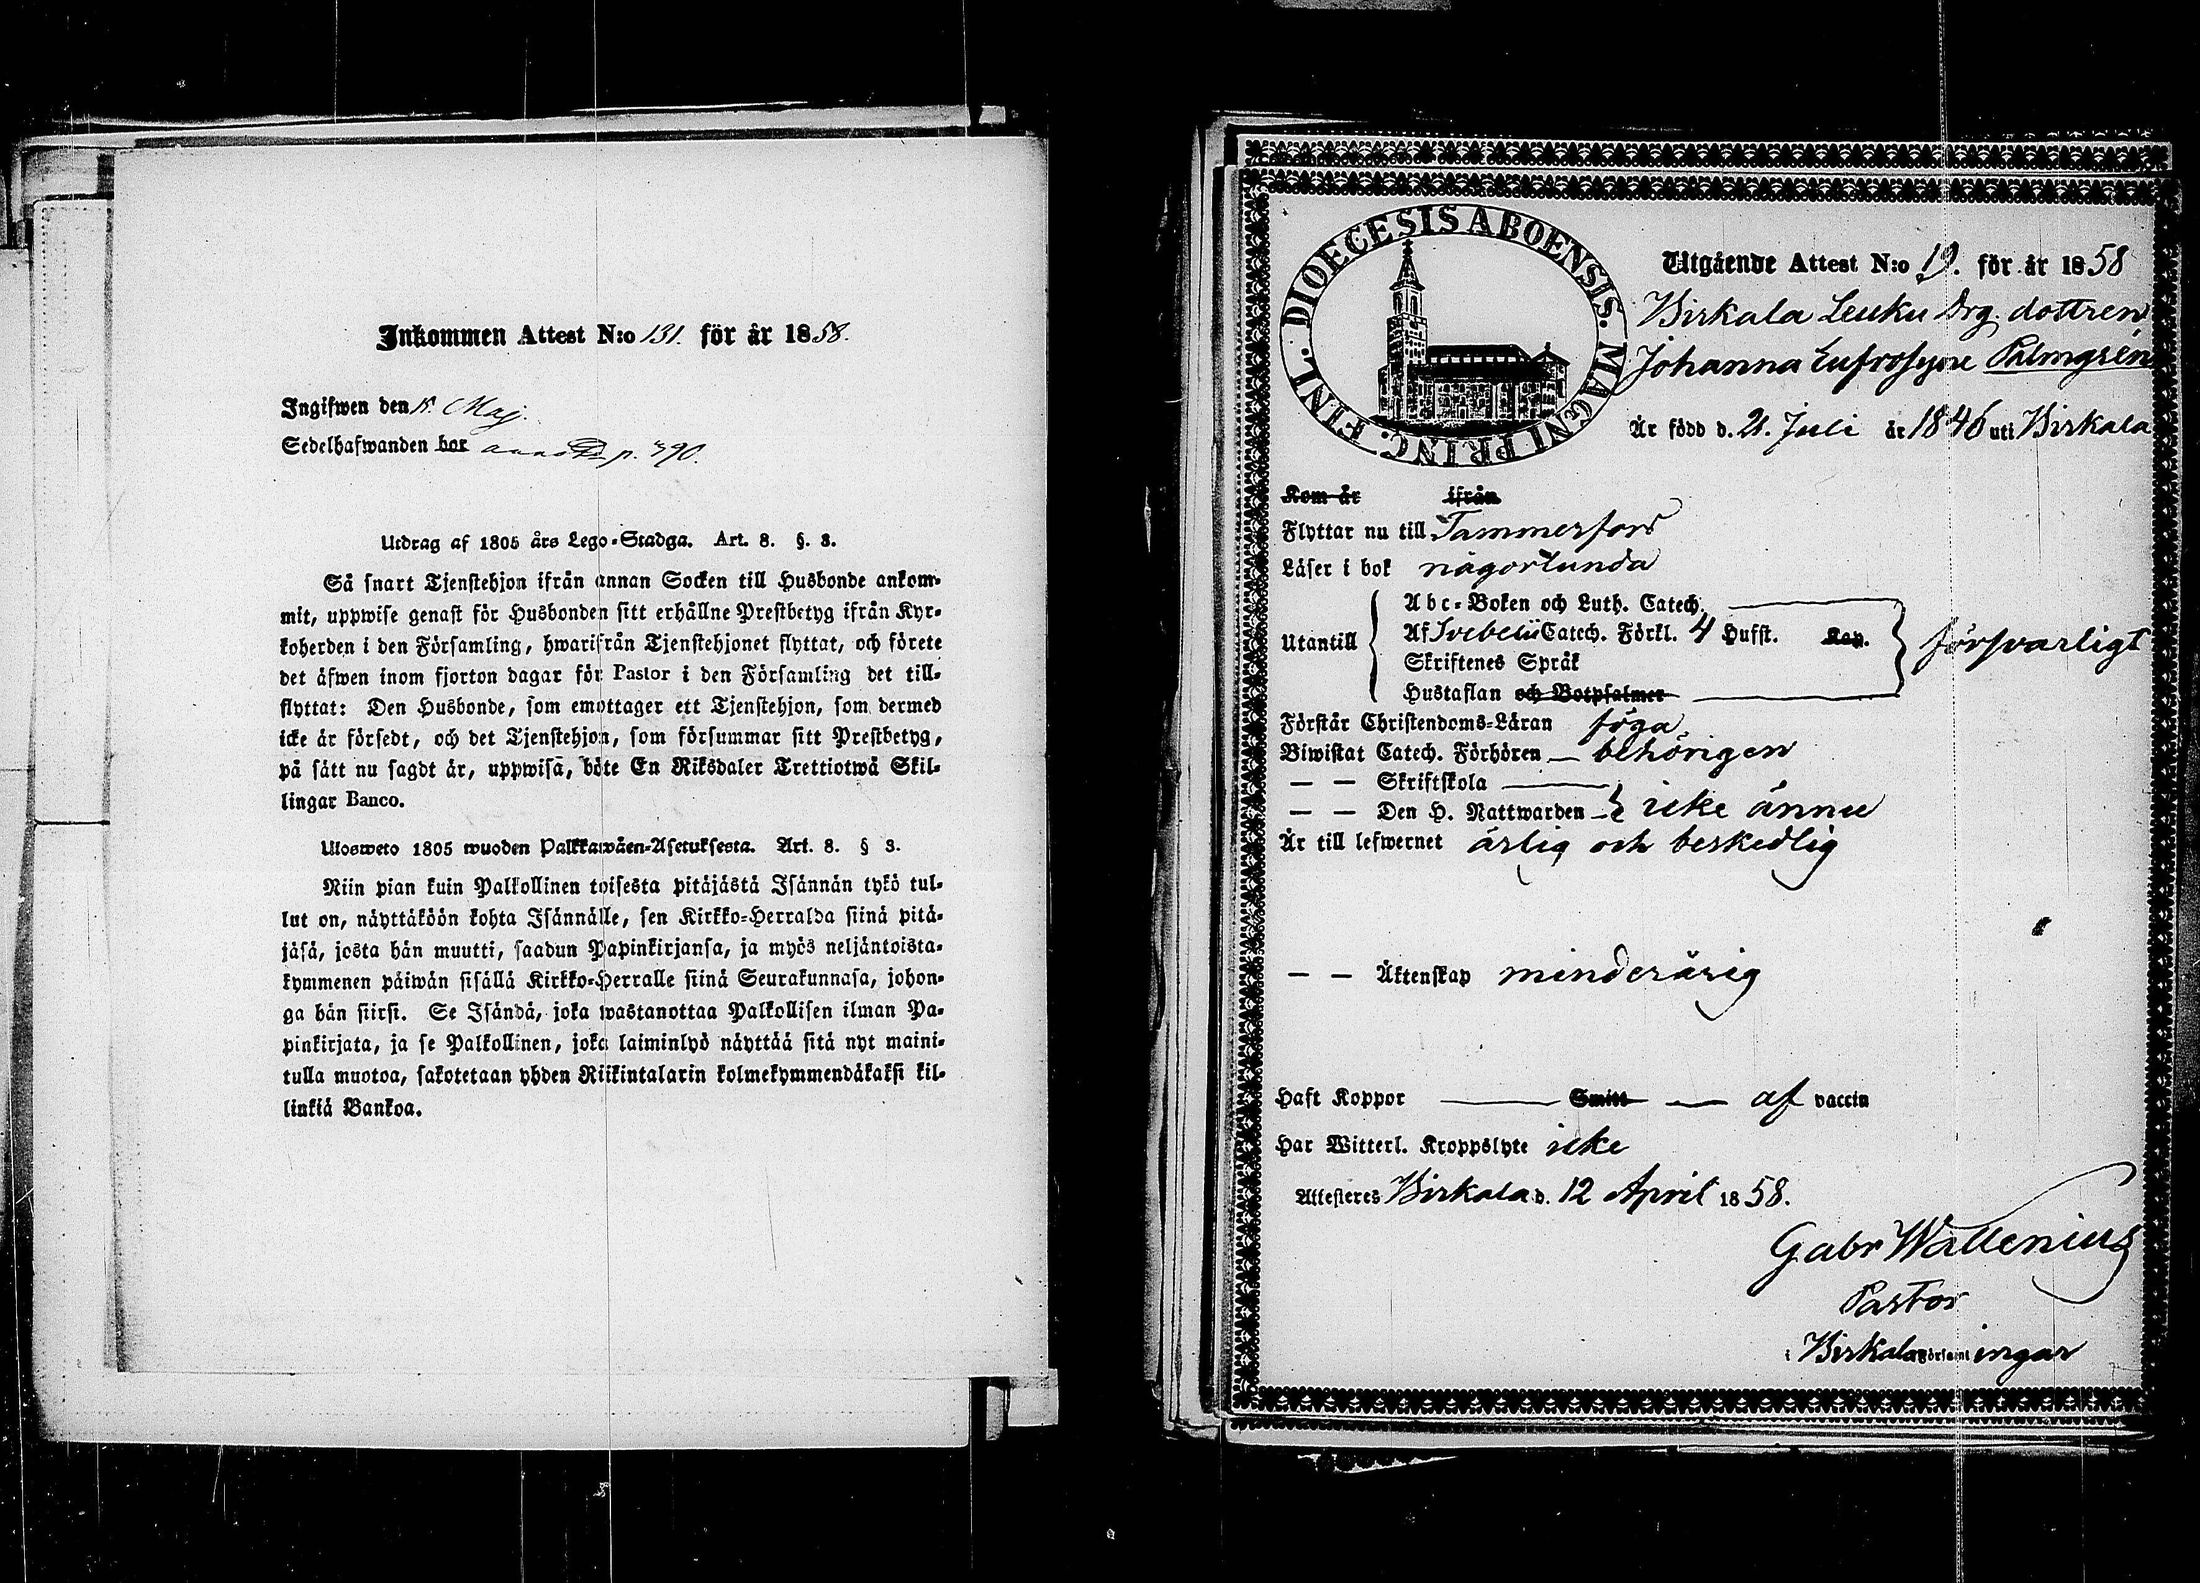 Inkommen Attest N:o 131. för år 1858.
Ingifwen den Maj.
Sedelhafwanden bor p. 490.
Utdrag af 1805 års Lego-Stadga. Art. 8. §. 3.
Så snart Tjenstehjon ifrån annan Socken till Husbonde ankom-
mit, uppwise genast för Husbonden sitt erhållne Prestbetyg ifrån Kyr-
koherden i den Församling, hwarifrån Tjenstehjonet flyttat, och förete
det äfwen inom fjorton dagar för Pastor i den Församling det till-
flyttat: Den Husbonde, som emottager ett Tjenstehjon, som dermed
icke är försedt, och det Tjenstehjon, som försummar sitt Prestbetyg,
på sätt nu sagdt är, uppwisa, böte En Riksdaler Trettiotwå Skil-
lingar Banco.
Ulosweto 1805 wuoden Palkkawäen-Asetuksesta. Art. 8. § 3.
Niin pian kuin Palkollinen toisesta pitäjästä Isännän tykö tul-
lut on, näyttäköön kohta Isännälle, sen Kirkko-Herralda siinä pitä-
jäsä, josta hän muutti, saadun Papinkirjansa, ja myös neljäntoista-
kymmenen päiwän sisällä Kirkko-Herralle siinä Seurakunnasa, johon-
ga hän siirsi. Se Isändä, joka wastanottaa Palkollisen ilman Pa-
pinkirjata, ja se Palkollinen, joka laiminlyö näyttää sitä nyt maini-
tulla muotoa, sakotetaan yhden Riikintalarin kolmekymmendäkaksi kil-
linkiä Bankoa.
DIOECESIS ABOENSIS. MAGNI PRINC. FINL.
Utgående Attest N:o 19. för år 1858
Birkala Leuku Drg. dottren
Johanna Eufrosyne Palmgrén
Är född d. 21. Juli år 1846 uti Birkala
Kom år ifrån
Flyttar nu till Tammerfors
Läser i bok någorlunda
Utantill
Abc-Boken och Luth. Catech.
Af Svebelii Catech. Förkl. 4 Hufst. Kap.
Skriftenes Språk
Hustaflan och Botpsalmer
försvarligt
Förstår Christendoms-Läran föga
Biwistat Catech. Förhören behörigen
— — Skriftskola
— — Den H. Nattwarden icke ännu
Är till lefwernet ärlig och beskedlig
— — Äktenskap minderårig
Haft Koppor Smitt af vaccin
Har Witterl. Kroppslyte icke
Attesteres Birkala d. 12 April 1858.
Gabr Wallenius
Pastor
i Birkala Församl ingar